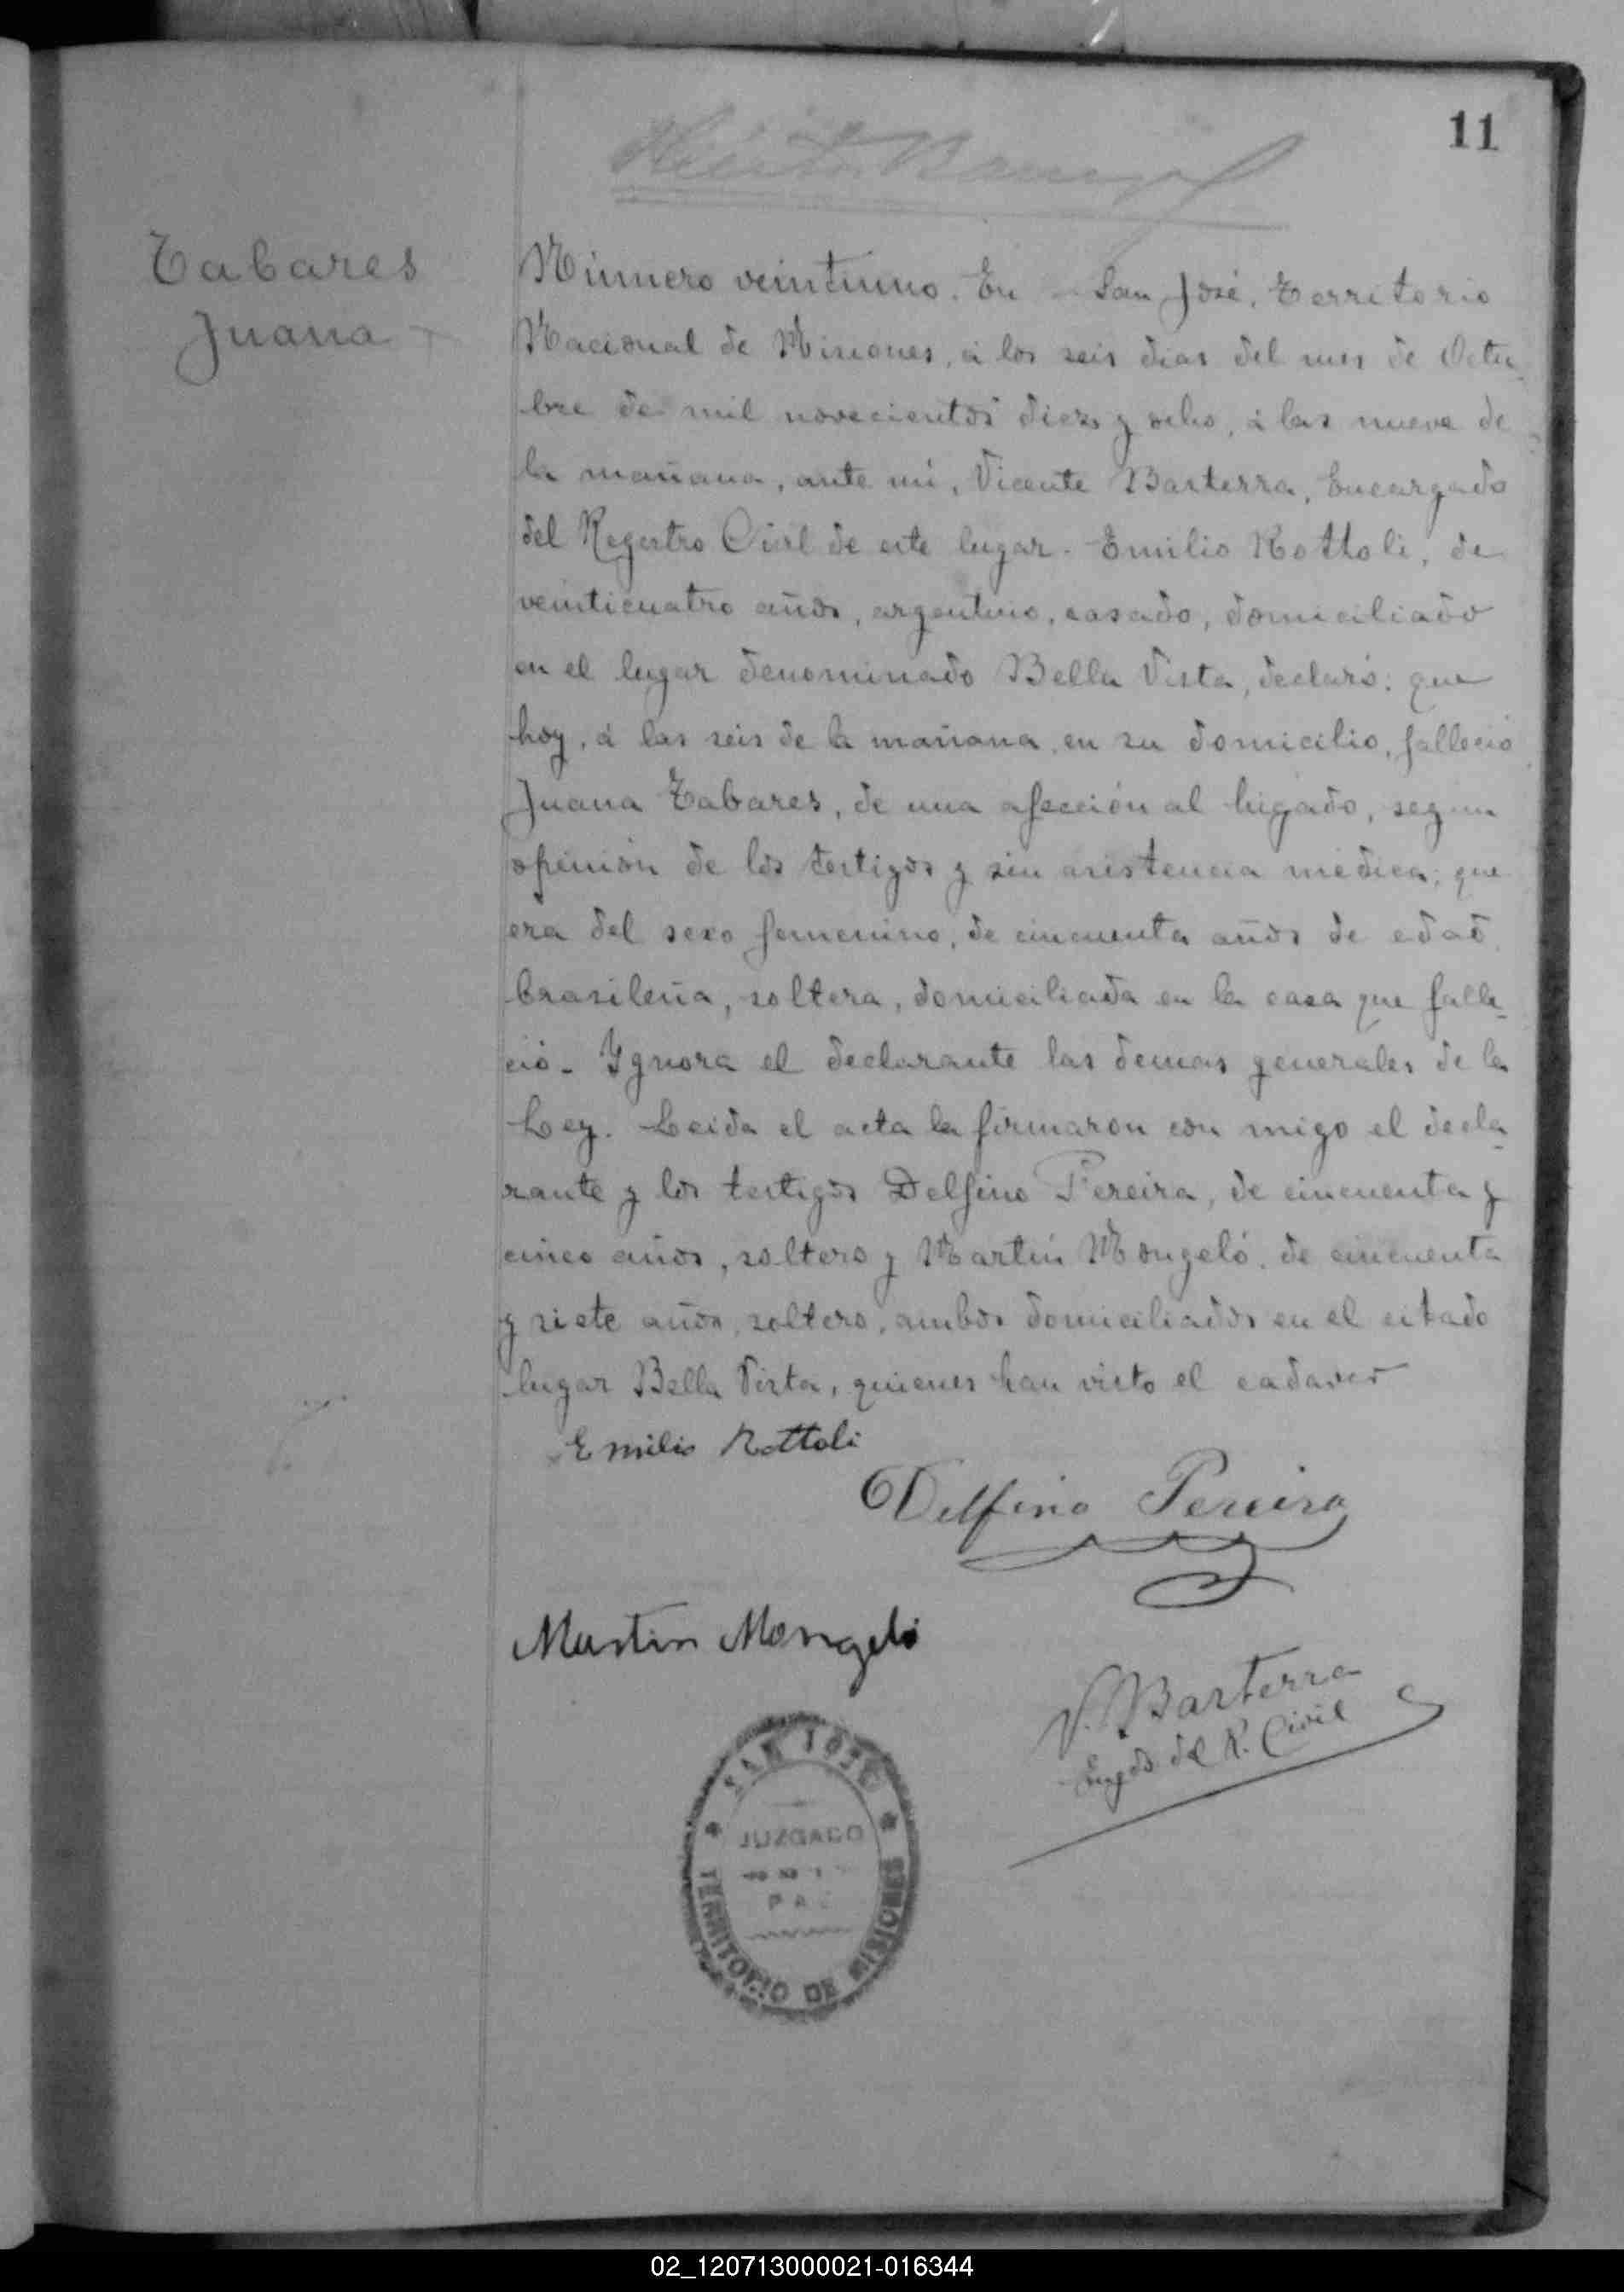 11
Tabares
Juana
Número veintiuno. En San José, Territorio
Nacional de Misiones, á los seis dias del mes de Octu-
bre de mil novecientos diez y ocho, á las nueve de
la mañana, ante mí, Vicente Basterra, Encargado
del Registro Civil de este lugar. Emilio Rottoli, de
veinticuatro años, argentino, casado, domiciliado
en el lugar denominado Bella Vista, declaró: que
hoy, á las seis de la mañana, en su domicilio, falleció
Juana Tabares, de una afección al higado, segun
opinión de los testigos y sin asistencia médica; que
era del sexo femenino, de cincuenta años de edad,
brasileña, soltera, domiciliada en la casa que falle-
ció. Ygnora el declarante las demas generales de la
Ley. Leida el acta la firmaron con migo el decla-
rante y los testigos Delfino Pereira, de cincuenta y
cinco años, soltero y Martín Mongeló, de cincuenta
y siete años, soltero, ambos domiciliados en el citado
lugar Bella Vista, quienes han visto el cadaver
Emilio Rottoli
Delfino Pereira
Martin Mongelo
V. Basterra
Engdo. del R. Civil
SAN JOSE
JUZGADO
PAZ
TERRITORIO DE MISIONES
02_120713000021-016344